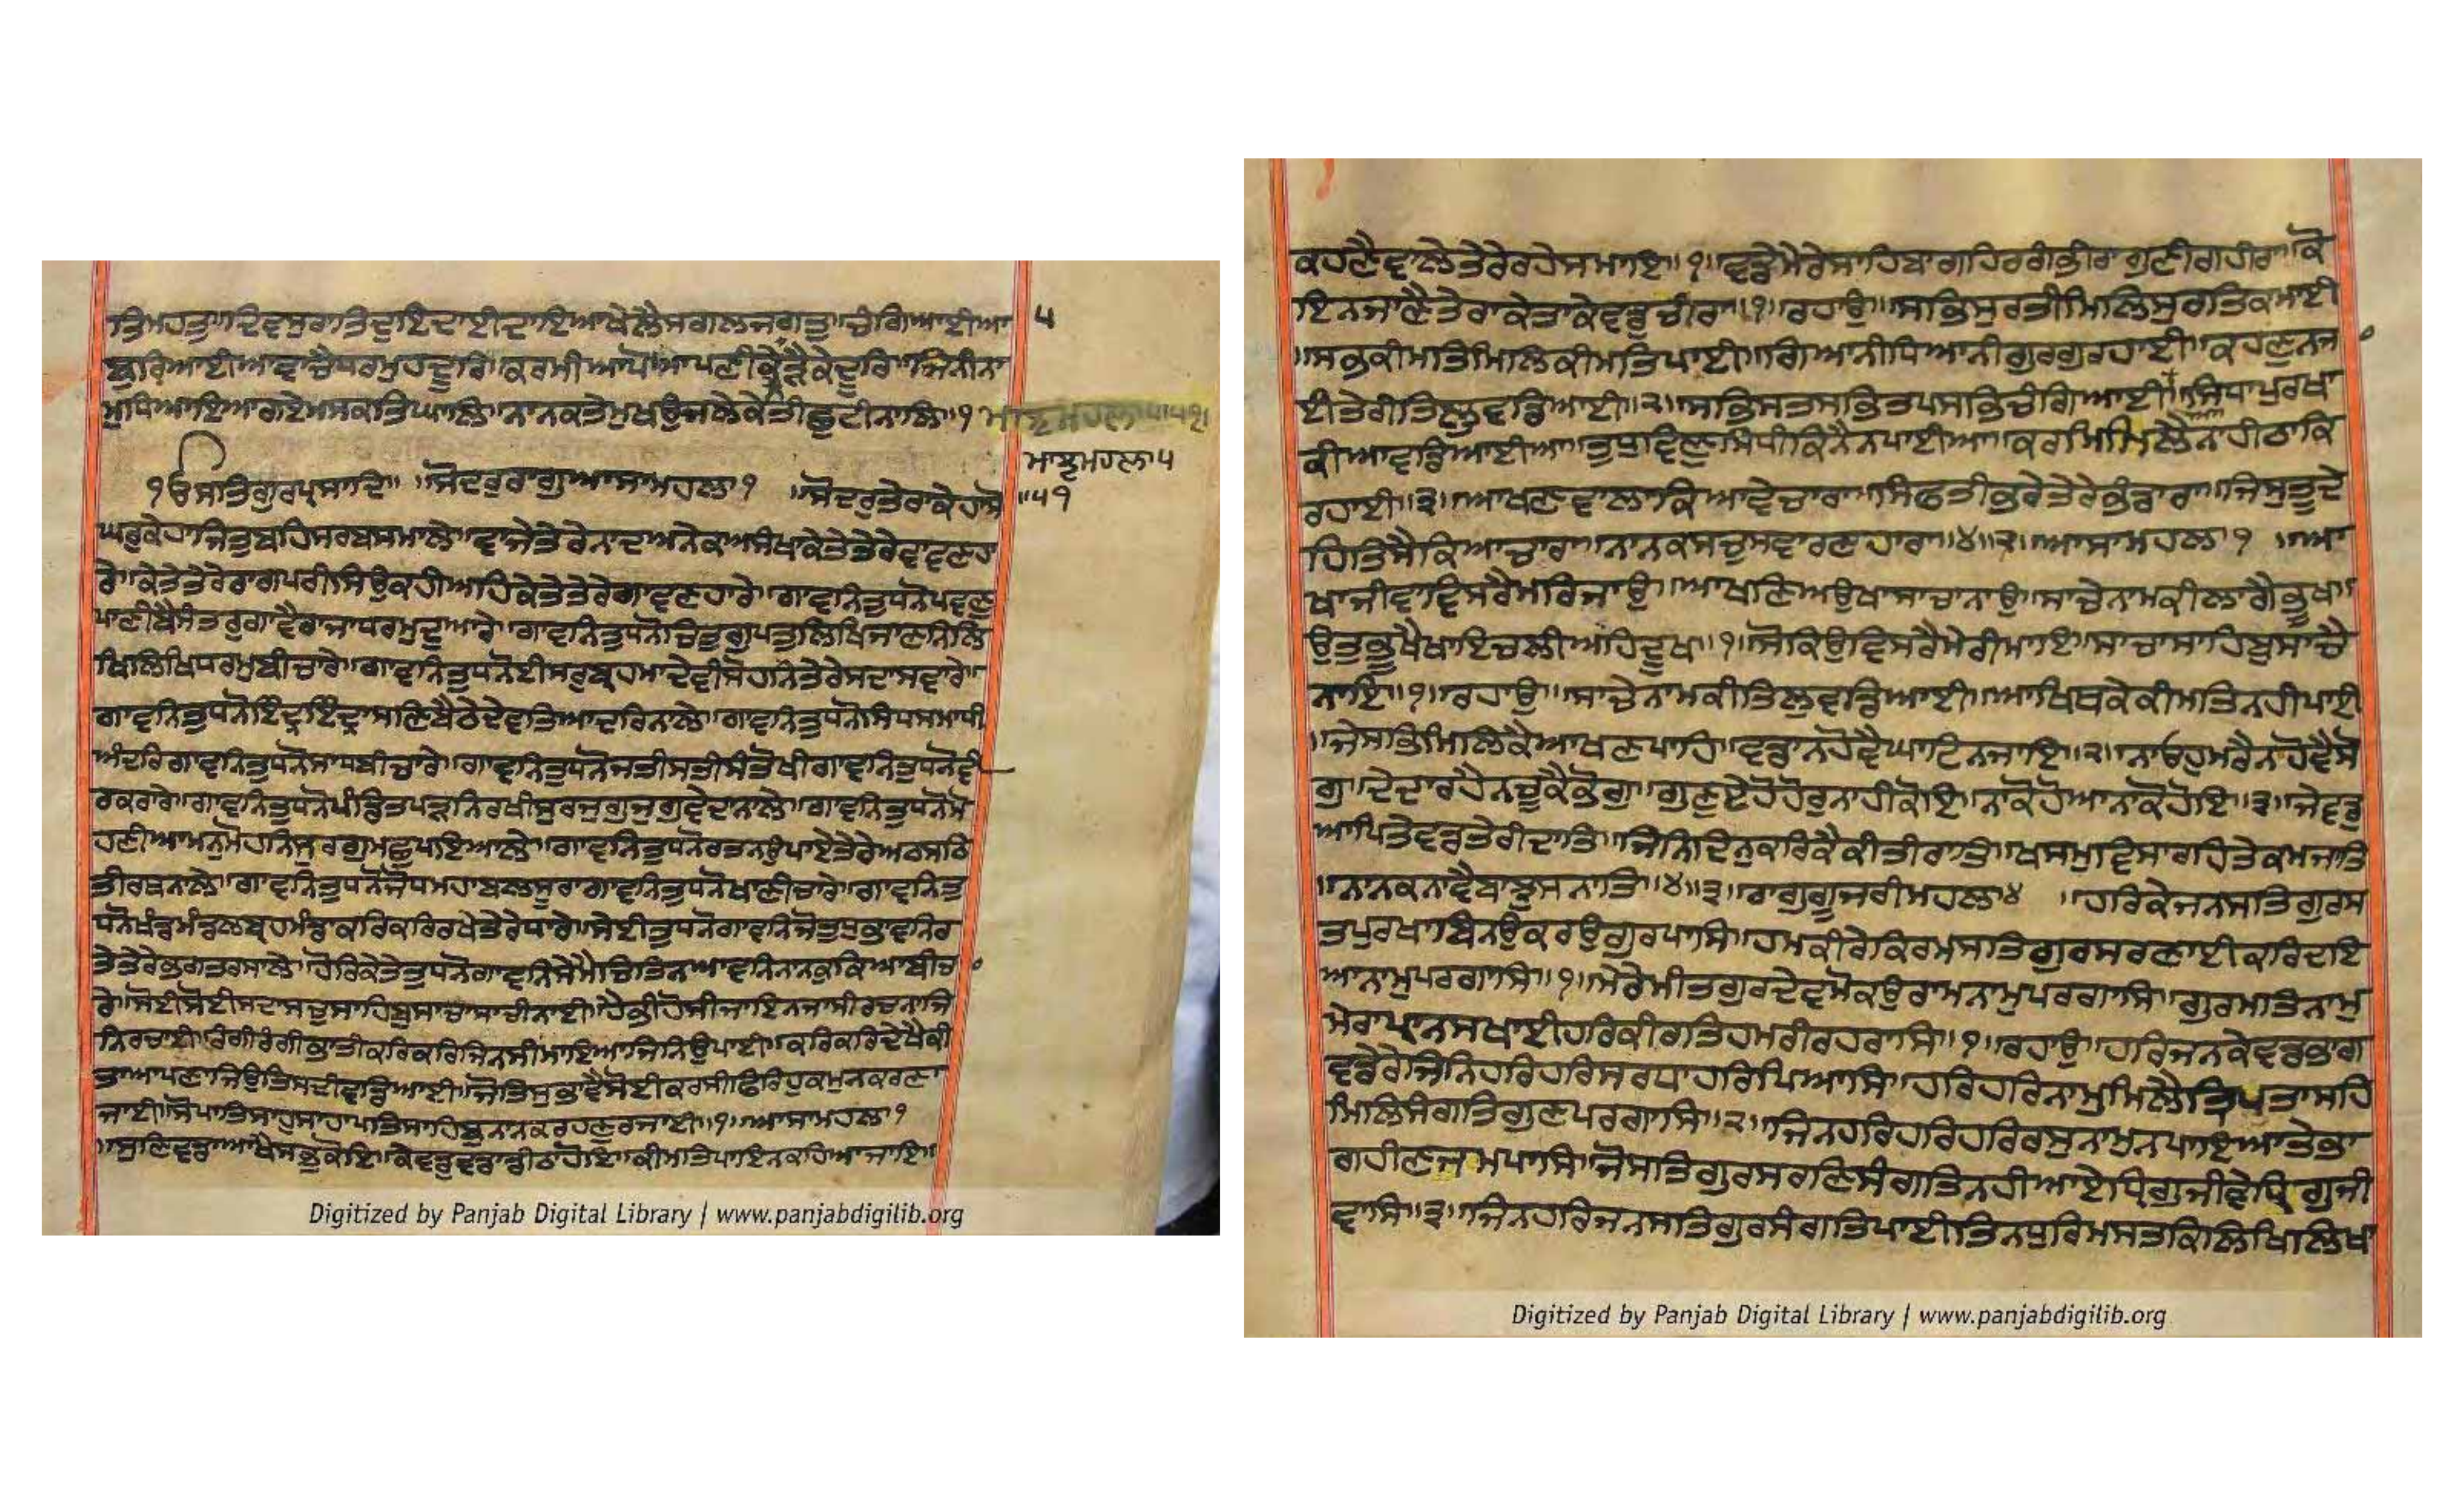 ਤਿਮਹਤੁ॥ਦਿਵਸੁਰਾਤਿਦੁਇਦਾਈਦਾਇਆਖੇਲੈਸਗਲਜਗਤੁ॥ਚੰਗਿਆਈਆ
ਬੁਰਿਆਈਆਵਾਚੈਧਰਮੁਹਦੂਰਿ॥ਕਰਮੀਆਪੋਆਪਣੀਕੇਨੇੜੈਕੇਦੂਰਿ॥ਜਿਨੀਨਾ
ਮੁਧਿਆਇਆਗਏਮਸਕਤਿਘਾਲਿ॥ਨਾਨਕਤੇਮੁਖਉਜਲੇਕੇਤੀਛੁਟੀਨਾਲਿ॥੧
੫
ਮਾਝੂਮਹਲਾ੫
॥੫੧
੧ਓਸਤਿਗੁਰਪ੍ਰਸਾਦਿ॥ ॥ਸੋਦਰੁਰਾਗੁਆਸਾਮਹਲਾ੧ ॥ਸੋਦਰੁਤੇਰਾਕੇਹਾਸੋ
ਘਰੁਕੇਹਾਜਿਤੁਬਹਿਸਰਬਸਮਾਲੇ॥ਵਾਜੇਤੇਰੇਨਾਦਅਨੇਕਅਸੰਖਾਕੇਤੇਤੇਰੇਵਾਵਣਹਾ
ਰੇ॥ਕੇਤੇਤੇਰੇਰਾਗਪਰੀਸਿਉਕਹੀਅਹਿਕੇਤੇਤੇਰੇਗਾਵਣਹਾਰੇ॥ਗਾਵਨਿਤੁਧਨੋਪਵਣੁ
ਪਾਣੀਬੈਸੰਤਰੁਗਾਵੈਰਾਜਾਧਰਮੁਦੁਆਰੇ॥ਗਾਵਨਿਤੁਧਨੋਚਿਤੁਗੁਪਤੁਲਿਖਿਜਾਣਨਿਲਿ
ਖਿਲਿਖਿਧਰਮੁਬੀਚਾਰੇ॥ਗਾਵਨਿਤੁਧਨੋਈਸਰੁਬ੍ਰਹਮਾਦੇਵੀਸੋਹਨਿਤੇਰੇਸਦਾਸਵਾਰੇ॥
ਗਾਵਨਿਤੁਧਨੋਇੰਦ੍ਰਇੰਦ੍ਰਾਸਣਿਬੈਠੇਦੇਵਤਿਆਦਰਿਨਾਲੇ॥ਗਾਵਨਿਤੁਧਨੋਸਿਧਸਮਾਧੀ
ਅੰਦਰਿਗਾਵਨਿਤੁਧਨੋਸਾਧਬੀਚਾਰੇ॥ਗਾਵਨਿਤੁਧਨੋਜਤੀਸਤੀਸੰਤੋਖੀਗਾਵਨਿਤੁਧਨੋਵੀ
ਰਕਰਾਰੇ॥ਗਾਵਨਿਤੁਧਨੋਪੰਡਿਤਪੜਨਿਰਖੀਸੁਰਜੁਗੁਜੁਗੁਵੇਦਾਨਾਲੇ॥ਗਾਵਨਿਤੁਧਨੋਮੋ
ਹਣੀਆਮਨੁਮੋਹਨਿਸੁਰਗੁਮਛੁਪਇਆਲੇ॥ਗਾਵਨਿਤੁਧਨੋਰਤਨਉਪਾਏਤੇਰੇਅਠਸਠਿ
ਤੀਰਥਨਾਲੇ॥ਗਾਵਨਿਤੁਧਨੋਜੋਧਮਹਾਬਲਸੂਰਾਗਾਵਨਿਤੁਧਨੋਖਾਣੀਚਾਰੇ॥ਗਾਵਨਿਤੁ
ਧਨੋਖੰਡਮੰਡਲਬ੍ਰਹਮੰਡਾਕਰਿਕਰਿਰਖੇਤੇਰੇਧਾਰੇ॥ਸੇਈਤੁਧਨੋਗਾਵਨਿਜੋਤੁਧੁਭਾਵਨਿਰ
ਤੇਤੇਰੇਭਗਤਰਸਾਲੇ॥ਹੋਰਿਕੇਤੇਤੁਧਨੋਗਾਵਨਿਸੇਮੈਚਿਤਿਨਆਵਨਿਨਾਨਕੁਕਿਆਬੀਚਾ
ਰੇ॥ਸੋਈਸੋਈਸਦਾਸਚੁਸਾਹਿਬੁਸਾਚਾਸਾਚੀਨਾਈ॥ਹੈਭੀਹੋਸੀਜਾਇਨਜਾਸੀਰਚਨਾਜਿ
ਨਿਰਚਾਈ॥ਰੰਗੀਰੰਗੀਭਾਤੀਕਰਿਕਰਿਜਿਨਸੀਮਾਇਆਜਿਨਿਉਪਾਈ॥ਕਰਿਕਰਿਦੇਖੈਕੀ
ਤਾਆਪਣਾਜਿਉਤਿਸਦੀਵਡਿਆਈ॥ਜੋਤਿਸੁਭਾਵੈਸੋਈਕਰਸੀਫਿਰਿਹੁਕਮੁਨਕਰਣਾ
ਜਾਈ॥ਸੋਪਾਤਿਸਾਹੁਸਾਹਾਪਤਿਸਾਹਿਬੁਨਾਨਕਰਹਣੁਰਜਾਈ॥੧॥ਆਸਾਮਹਲਾ੧
॥ਸੁਣਿਵਡਾਆਖੈਸਭੁਕੋਇ॥ਕੇਵਡੁਵਡਾਡੀਠਾਹੋਇ॥ਕੀਮਤਿਪਾਇਨਕਹਿਆਜਾਇ॥
Digitized by Panjab Digital Library | www.panjabdigilib.org
ਕਹਣੈਵਾਲੇਤੇਰੇਰਹੇਸਮਾਇ॥੧॥ਵਡੇਮੇਰੇਸਾਹਿਬਾਗਹਿਰਗੰਭੀਰਾਗੁਣੀਗਹੀਰਾ॥ਕੋ
ਇਨਜਾਣੈਤੇਰਾਕੇਤਾਕੇਵਡੁਚੀਰਾ॥੧॥ਰਹਾਉ॥ਸਭਿਸੁਰਤੀਮਿਲਿਸੁਰਤਿਕਮਾਈ
॥ਸਭਕੀਮਤਿਮਿਲਿਕੀਮਤਿਪਾਈ॥ਗਿਆਨੀਧਿਆਨੀਗੁਰਗੁਰਹਾਈ॥ਕਹਣੁਨਜਾ
ਈਤੇਰੀਤਿਲੁਵਡਿਆਈ॥੨॥ਸਭਿਸਤਸਭਿਤਪਸਭਿਚੰਗਿਆਈ॥ਸਿਧਾਪੁਰਖਾ
ਕੀਆਵਡਿਆਈਆ॥ਤੁਧੁਵਿਣੁਸਿਧੀਕਿਨੈਨਪਾਈਆ॥ਕਰਮਿਮਿਲੈਨਾਹੀਠਾਕਿ
ਰਹਾਈ॥੩॥ਆਖਣਵਾਲਾਕਿਆਵੇਚਾਰਾ॥ਸਿਫਤੀਭਰੇਤੇਰੇਭੰਡਾਰਾ॥ਜਿਸੁਤੂਦੇ
ਹਿਤਿਸੈਕਿਆਚਾਰਾ॥ਨਾਨਕਸਚੁਸਵਾਰਣਹਾਰਾ॥੪॥੨॥ਆਸਾਮਹਲਾ੧ ॥ਆ
ਖਾਜੀਵਾਵਿਸਰੈਮਰਿਜਾਉ॥ਆਖਣਿਅਉਖਾਸਾਚਾਨਾਉ॥ਸਾਚੇਨਾਮਕੀਲਾਗੈਭੂਖ॥
ਉਤੁਭੂਖੈਖਾਇਚਲੀਅਹਿਦੂਖ॥੧॥ਸੋਕਿਉਵਿਸਰੈਮੇਰੀਮਾਇ॥ਸਾਚਾਸਾਹਿਬੁਸਾਚੈ
ਨਾਇ॥੧॥ਰਹਾਉ॥ਸਾਚੇਨਾਮਕੀਤਿਲੁਵਡਿਆਈ॥ਆਖਿਥਕੇਕੀਮਤਿਨਹੀਪਾਈ
॥ਜੇਸਭਿਮਿਲਿਕੈਆਖਣਪਾਹਿ॥ਵਡਾਨਹੋਵੈਘਾਟਿਨਜਾਇ॥੨॥ਨਾਓਹੁਮਰੈਨਹੋਵੈਸੋ
ਗੁ॥ਦੇਦਾਰਹੈਨਚੂਕੈਭੋਗੁ॥ਗੁਣੁਏਹੋਹੋਰੁਨਾਹੀਕੋਇ॥ਨਾਕੋਹੋਆਨਾਕੋਹੋਇ॥੩॥ਜੇਵਡੁ
ਆਪਿਤੇਵਡਤੇਰੀਦਾਤਿ॥ਜਿਨਿਦਿਨੁਕਰਿਕੈਕੀਤੀਰਾਤਿ॥ਖਸਮੁਵਿਸਾਰਹਿਤੇਕਮਜਾਤਿ
॥ਨਾਨਕਨਾਵੈਬਾਝੁਸਨਾਤਿ॥੪॥੩॥ਰਾਗੁਗੂਜਰੀਮਹਲਾ੪ ॥ਹਰਿਕੇਜਨਸਤਿਗੁਰਸ
ਤਪੁਰਖਾਬਿਨਉਕਰਉਗੁਰਪਾਸਿ॥ਹਮਕੀਰੇਕਿਰਮਸਤਿਗੁਰਸਰਣਾਈਕਰਿਦਇ
ਆਨਾਮੁਪਰਗਾਸਿ॥੧॥ਮੇਰੇਮੀਤਗੁਰਦੇਵਮੋਕਉਰਾਮਨਾਮੁਪਰਗਾਸਿ॥ਗੁਰਮਤਿਨਾਮੁ
ਮੇਰਾਪ੍ਰਾਨਸਖਾਈਹਰਿਕੀਰਤਿਹਮਰੀਰਹਰਾਸਿ॥੧॥ਰਹਾਉ॥ਹਰਿਜਨਕੇਵਡਭਾਗ
ਵਡੇਰੇਜਿਨਿਹਰਿਹਰਿਸਰਧਾਹਰਿਪਿਆਸਿ॥ਹਰਿਹਰਿਨਾਮੁਮਿਲੈਤ੍ਰਿਪਤਾਸਹਿ
ਮਿਲਿਸੰਗਤਿਗੁਣਪਰਗਾਸਿ॥੨॥ਜਿਨਹਰਿਹਰਿਹਰਿਰਸੁਨਾਮੁਨਪਾਇਆਤੇਭਾ
ਗਹੀਣਜਮਪਾਸਿ॥ਜੋਸਤਿਗੁਰਸਰਣਿਸੰਗਤਿਨਹੀਆਏਧ੍ਰਿਗੁਜੀਵੇਧ੍ਰਿਗੁਜੀ
ਵਾਸਿ॥੩॥ਜਿਨਹਰਿਜਨਸਤਿਗੁਰਸੰਗਤਿਪਾਈਤਿਨਧੁਰਿਮਸਤਕਿਲਿਖਿਆਲਿਖਾ
Digitized by Panjab Digital Library | www.panjabdigilib.org